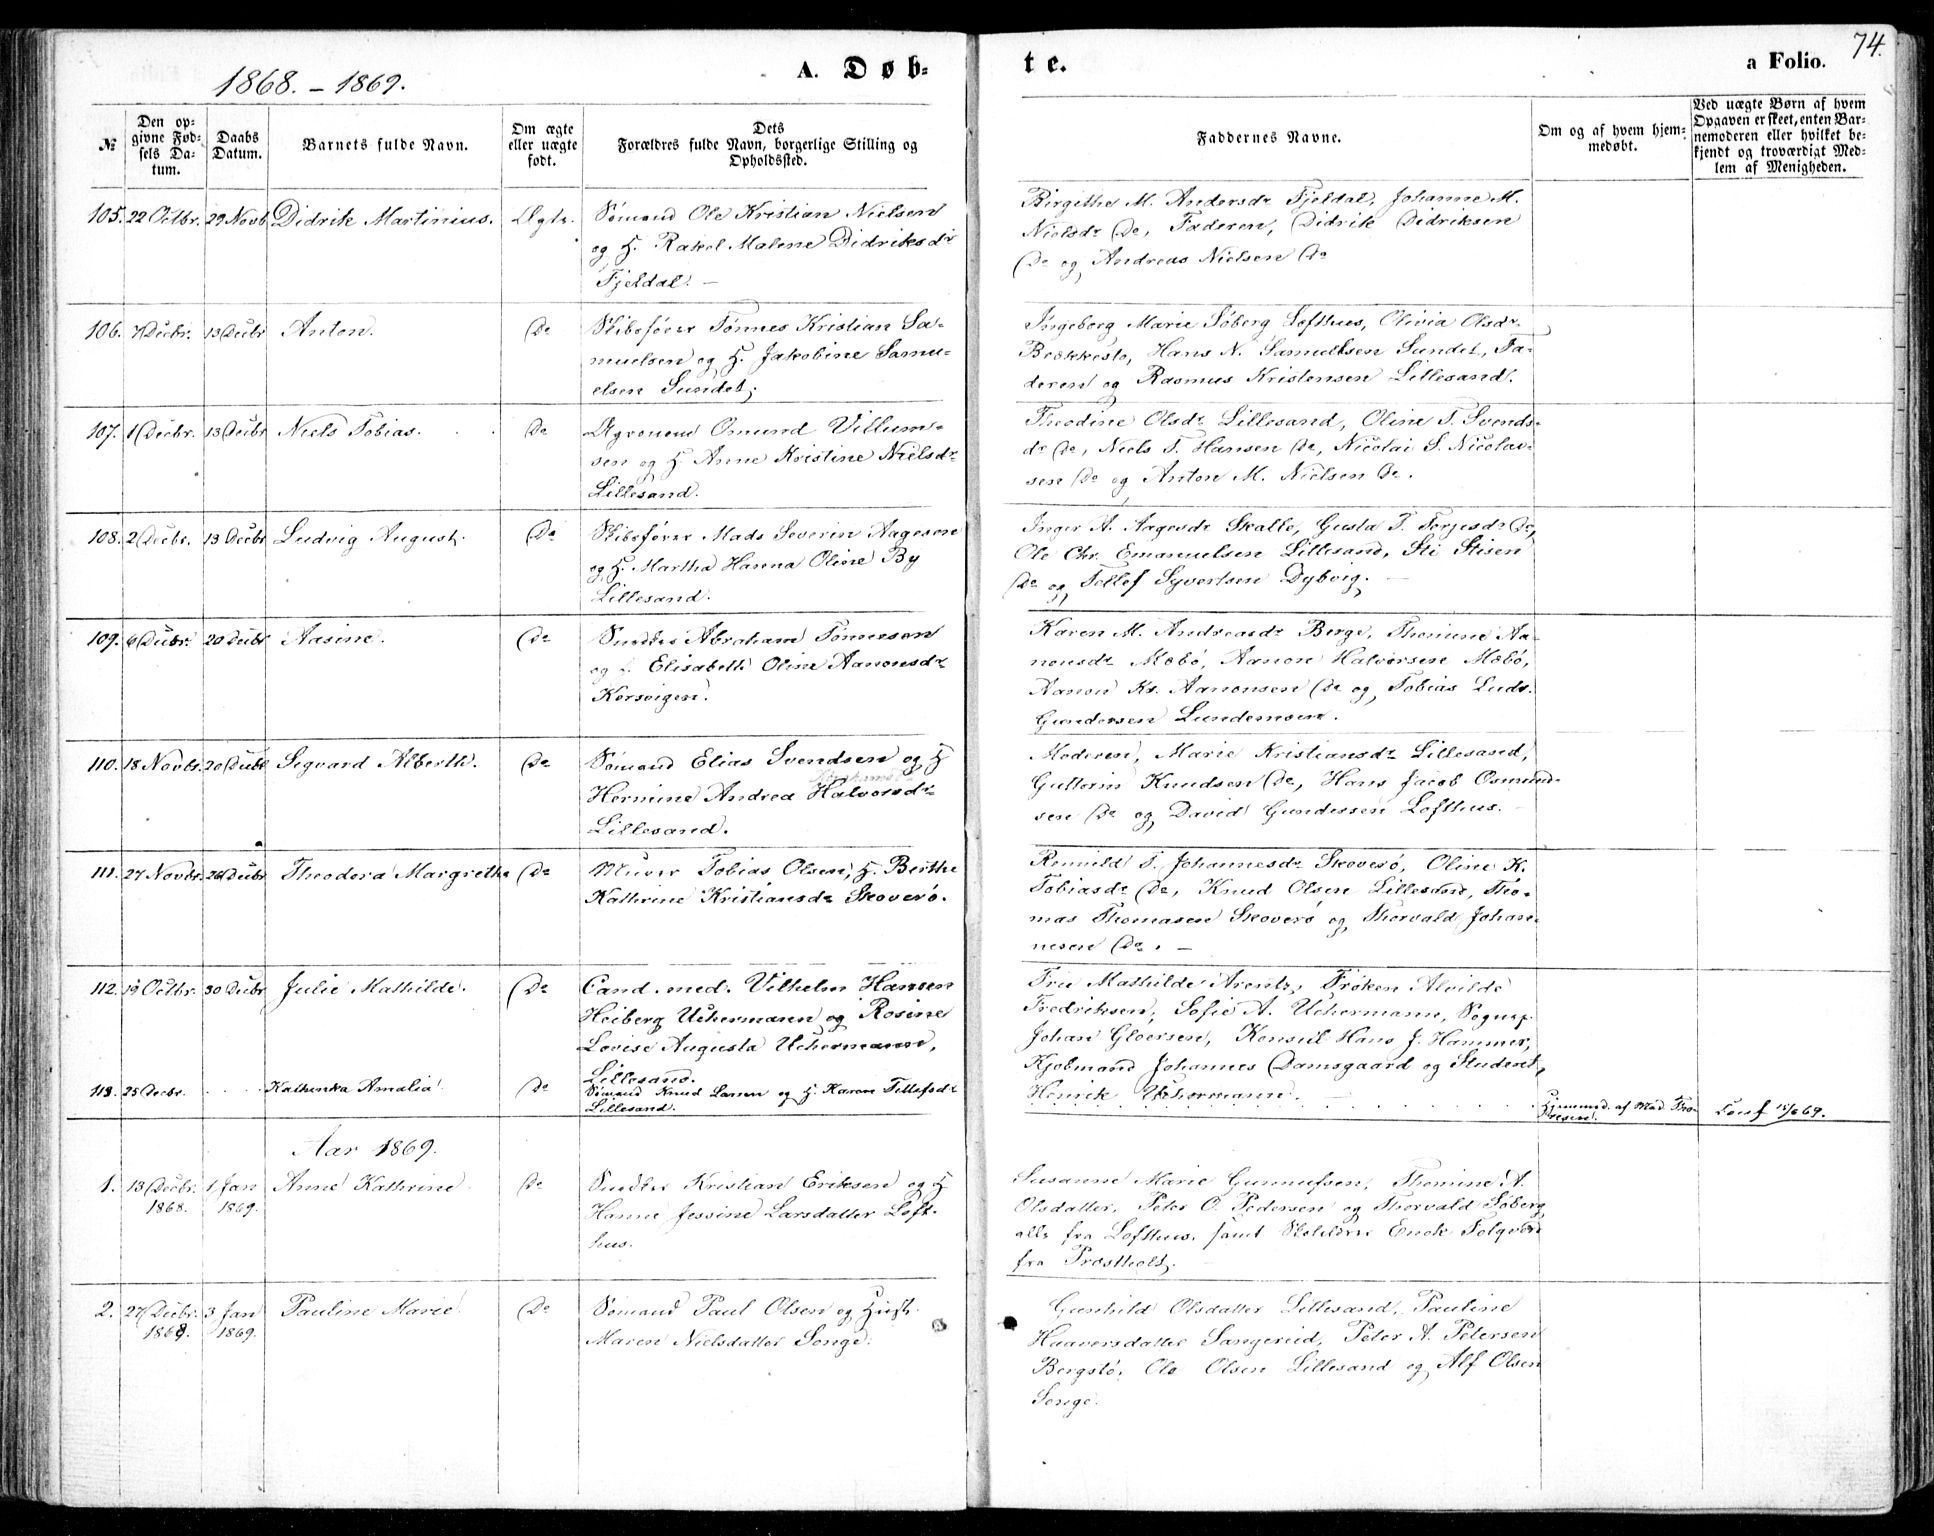 74.
1868. – 1869.
A. Døb-
te.
a Folio.
№
Den op-
givne Fød-
sels Da-
tum.
Daabs
Datum.
Barnets fulde Navn.
Om ægte
eller uægte
født.
Dets
Forældres fulde Navn, borgerlige Stilling og
Opholdssted.
Faddernes Navne.
Om og af hvem hjem-
medøbt.
Ved uægte Børn af hvem
Opgaven er skeet, enten Bar-
nemoderen eller hvilket be-
kjendt og troværdigt Med-
lem af Menigheden.
105. 22 Octbr. 29 Novb Didrik Martinius. Ægte.
Sømand Ole Kristian Nielsen
og H. Rakel Malene Didriksdr
Fjeldal. –
Birgithe M. Andersdr Fjeldal, Johanne M.
Nielsdr Do, Faderen, Didrik Didriksen
Do og Andreas Nielsen Do
106. 7 Decbr. 13 Decbr Anton. Do
Skibsfører Tønnes Kristian Sa-
muelsen og H. Jakobine Samu-
elsen Sundet.
Ingeborg Marie Søberg Lofthus, Olivia Olsdr
Brækkestø, Hans N. Samuelsen Sundet, Fa-
deren og Rasmus Kristensen Lillesand.
107. 1 Decbr. 13 Decbr Niels Tobias. Do
Omund Villum-
sen og H Anne Kristine Nielsdr
Lillesand.
Theodine Olsdr Lillesand, Oline T. Svends-
dr Do, Niels T. Hansen Do, Nicolai S. Nicolai-
sen Do og Anton M. Nielsen Do.
108. 2 Decbr. 13 Decbr Ludvig August. Do
Skibsfører Mads Severin Aagesen
og H. Martha Hanna Oline By
Lillesand.
Inger A. Aagesdr Skalle, Gusta T. Terjesdr Do,
Ole Chr. Emanuelsen Lillesand, Sti Stisen
Do og Tellef Syvertsen Dybvig. –
109. 6 Decbr. 20 Decbr Aasine. Do
Snedker Abraham Tønnesen
og H. Elisabeth Oline Aanonsdr
Korsvigen.
Karen M. Andreasdr Berge, Thomine Aa-
nonsdr Mæbø, Aanon Halvorsen Mæbø,
Aanon Kr. Aanonsen Do og Tobias Ludv.
Gundersen Lundemoen.
110. 18 Novbr. 20 Decbr Segvard Alberth. Do
Sømand Elias Svendsen og H
Hermine Andrea Halvorsdr
Lillesand.
Moderen, Marie Kristiansdr Lillesand,
Guttorm Knudsen Do, Hans Jacob Osmund-
sen Do og David Gundersen Lofthus. –
111. 27 Novbr. 26 Decbr Theodora Margrethe Do
Murer Tobias Olsen, H. Berthe
Kathrine Kristiansdr Skoverø.
Romild T. Johannesdr Skoverø, Oline K.
Tobiasdr Do, Knud Olsen Lillesand, Tho-
mas Thomasen Skoverø og Thorvald Johan-
nesen Do. –
112. 19 Octbr. 30 Decbr Julie Mathilde. Do
Cand. med. Vilhelm Hansen
Heiberg Uchermann og Rosine
Lovise Augusta Uchermann,
Lillesand.
Frue Mathilde Arentz, Frøken Alvilde
Fredriksen, Sofie A. Uchermann, Sognep.
Johan Gløersen, Konsul Hans J. Hammer,
Kjøbmand Johannes Damsgaard og Student
Henrik Uchermann. –
113. 25 Decbr. . . . Kathinka Amalia. Do
Sømand Knud Larsen og H. Karen Tellefsdr
Lillesand.
Hjemmed. af Mad. Tho-
resen.
Conf 15/6 69.
Aar 1869.
1. 13 Decbr. 1868. 1 Jan 1869. Anne Kathrine Do
Snedker Kristian Eriksen og H
Hanne Jessine Larsdatter Loft-
hus.
Susanne Marie Gunnufsen, Thomine A.
Olsdatter, Peter O. Pedersen og Thorvald Søberg
alle fra Lofthus, samt Enok Folqvord
fra Præstholt.
2. 27 Decbr. 1868. 3 Jan 1869. Pauline Marie Do
Sømand Paul Olsen og Hust.
Maren Nielsdatter Songe.
Gunhild Olsdatter Lillesand, Pauline
Haaversdatter Sangereid, Peter A. Petersen
Bergstø, Ole Olsen Lillesand og Alf Olsen
Songe.